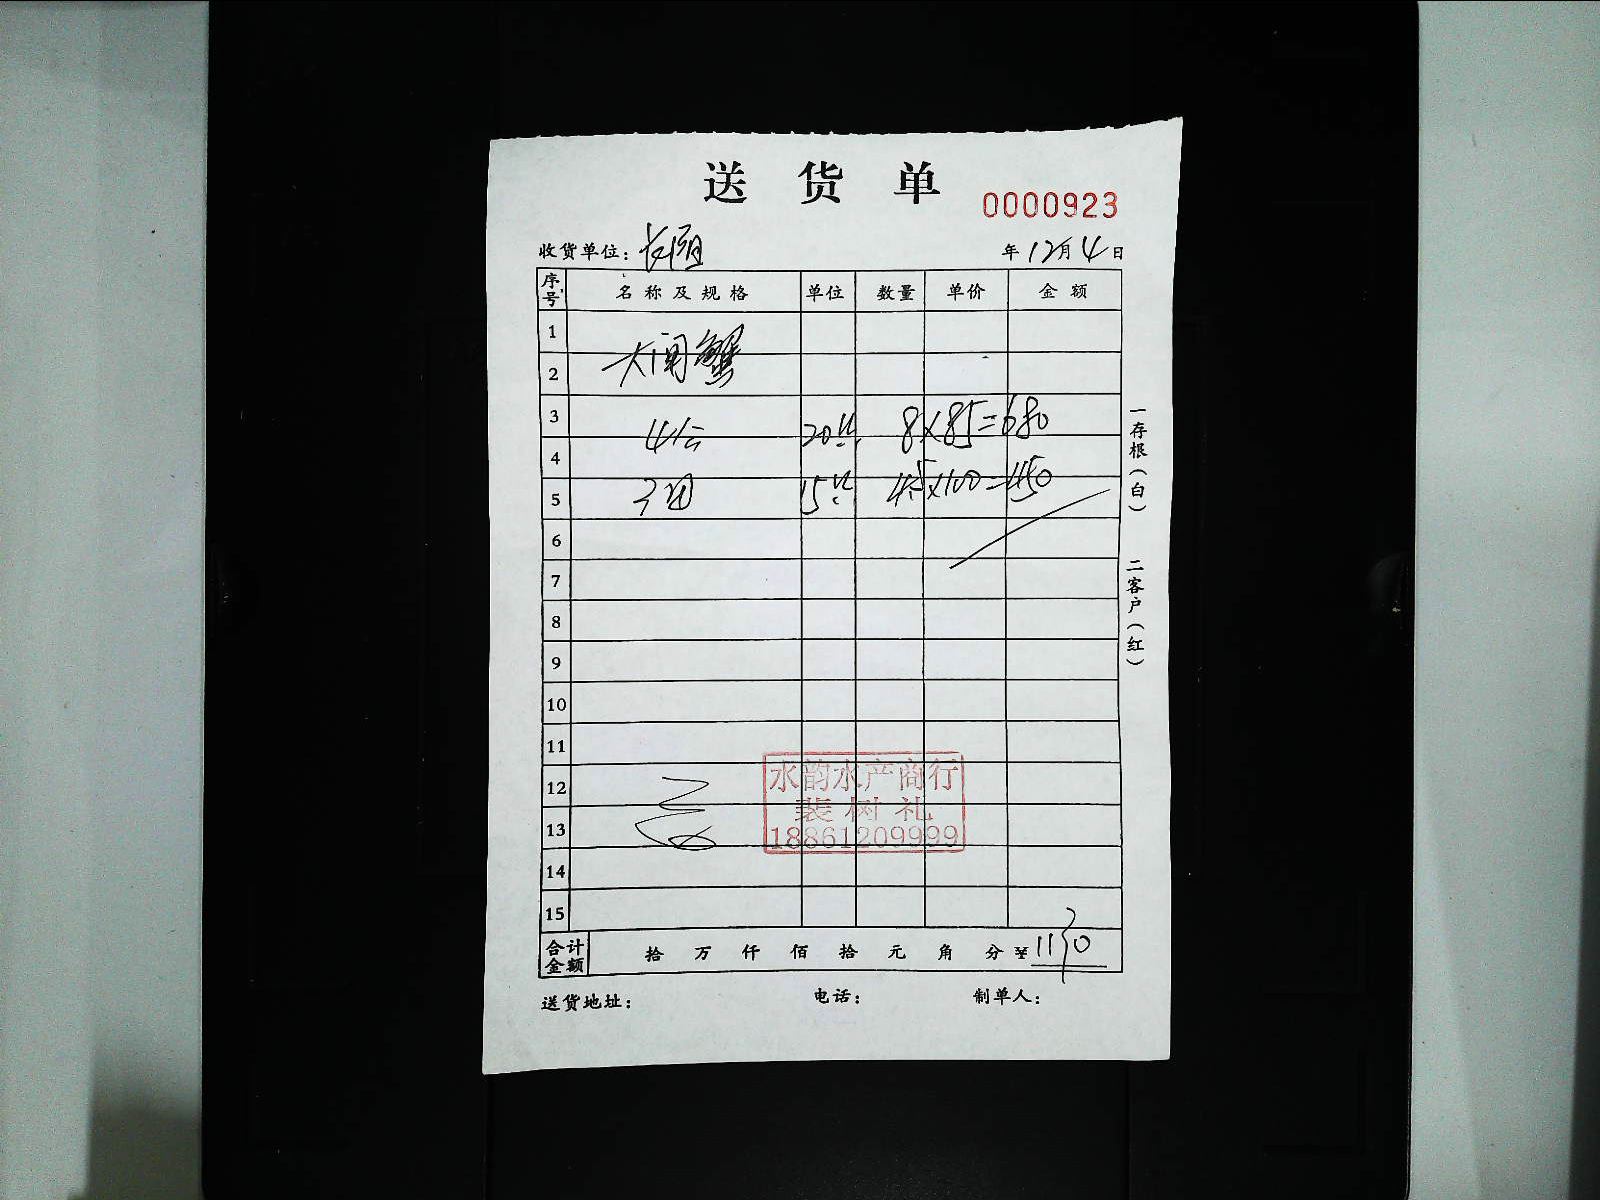 送 货 单
0000923
收货单位：
年 12月 4 日
序号 名称及规格 单位 数量 单价 金额
1
大闸蟹
2
3
4公 20只 8×85=680
4
3母 15只 4.5×100=450
5
6
7
8
9
10
11
12
13
14
15
水韵水产商行
裴树礼
18861209999
合计金额 拾 万 仟 佰 拾 元 角 分 ¥1130
送货地址： 电话： 制单人：
一存根（白）
二客户（红）